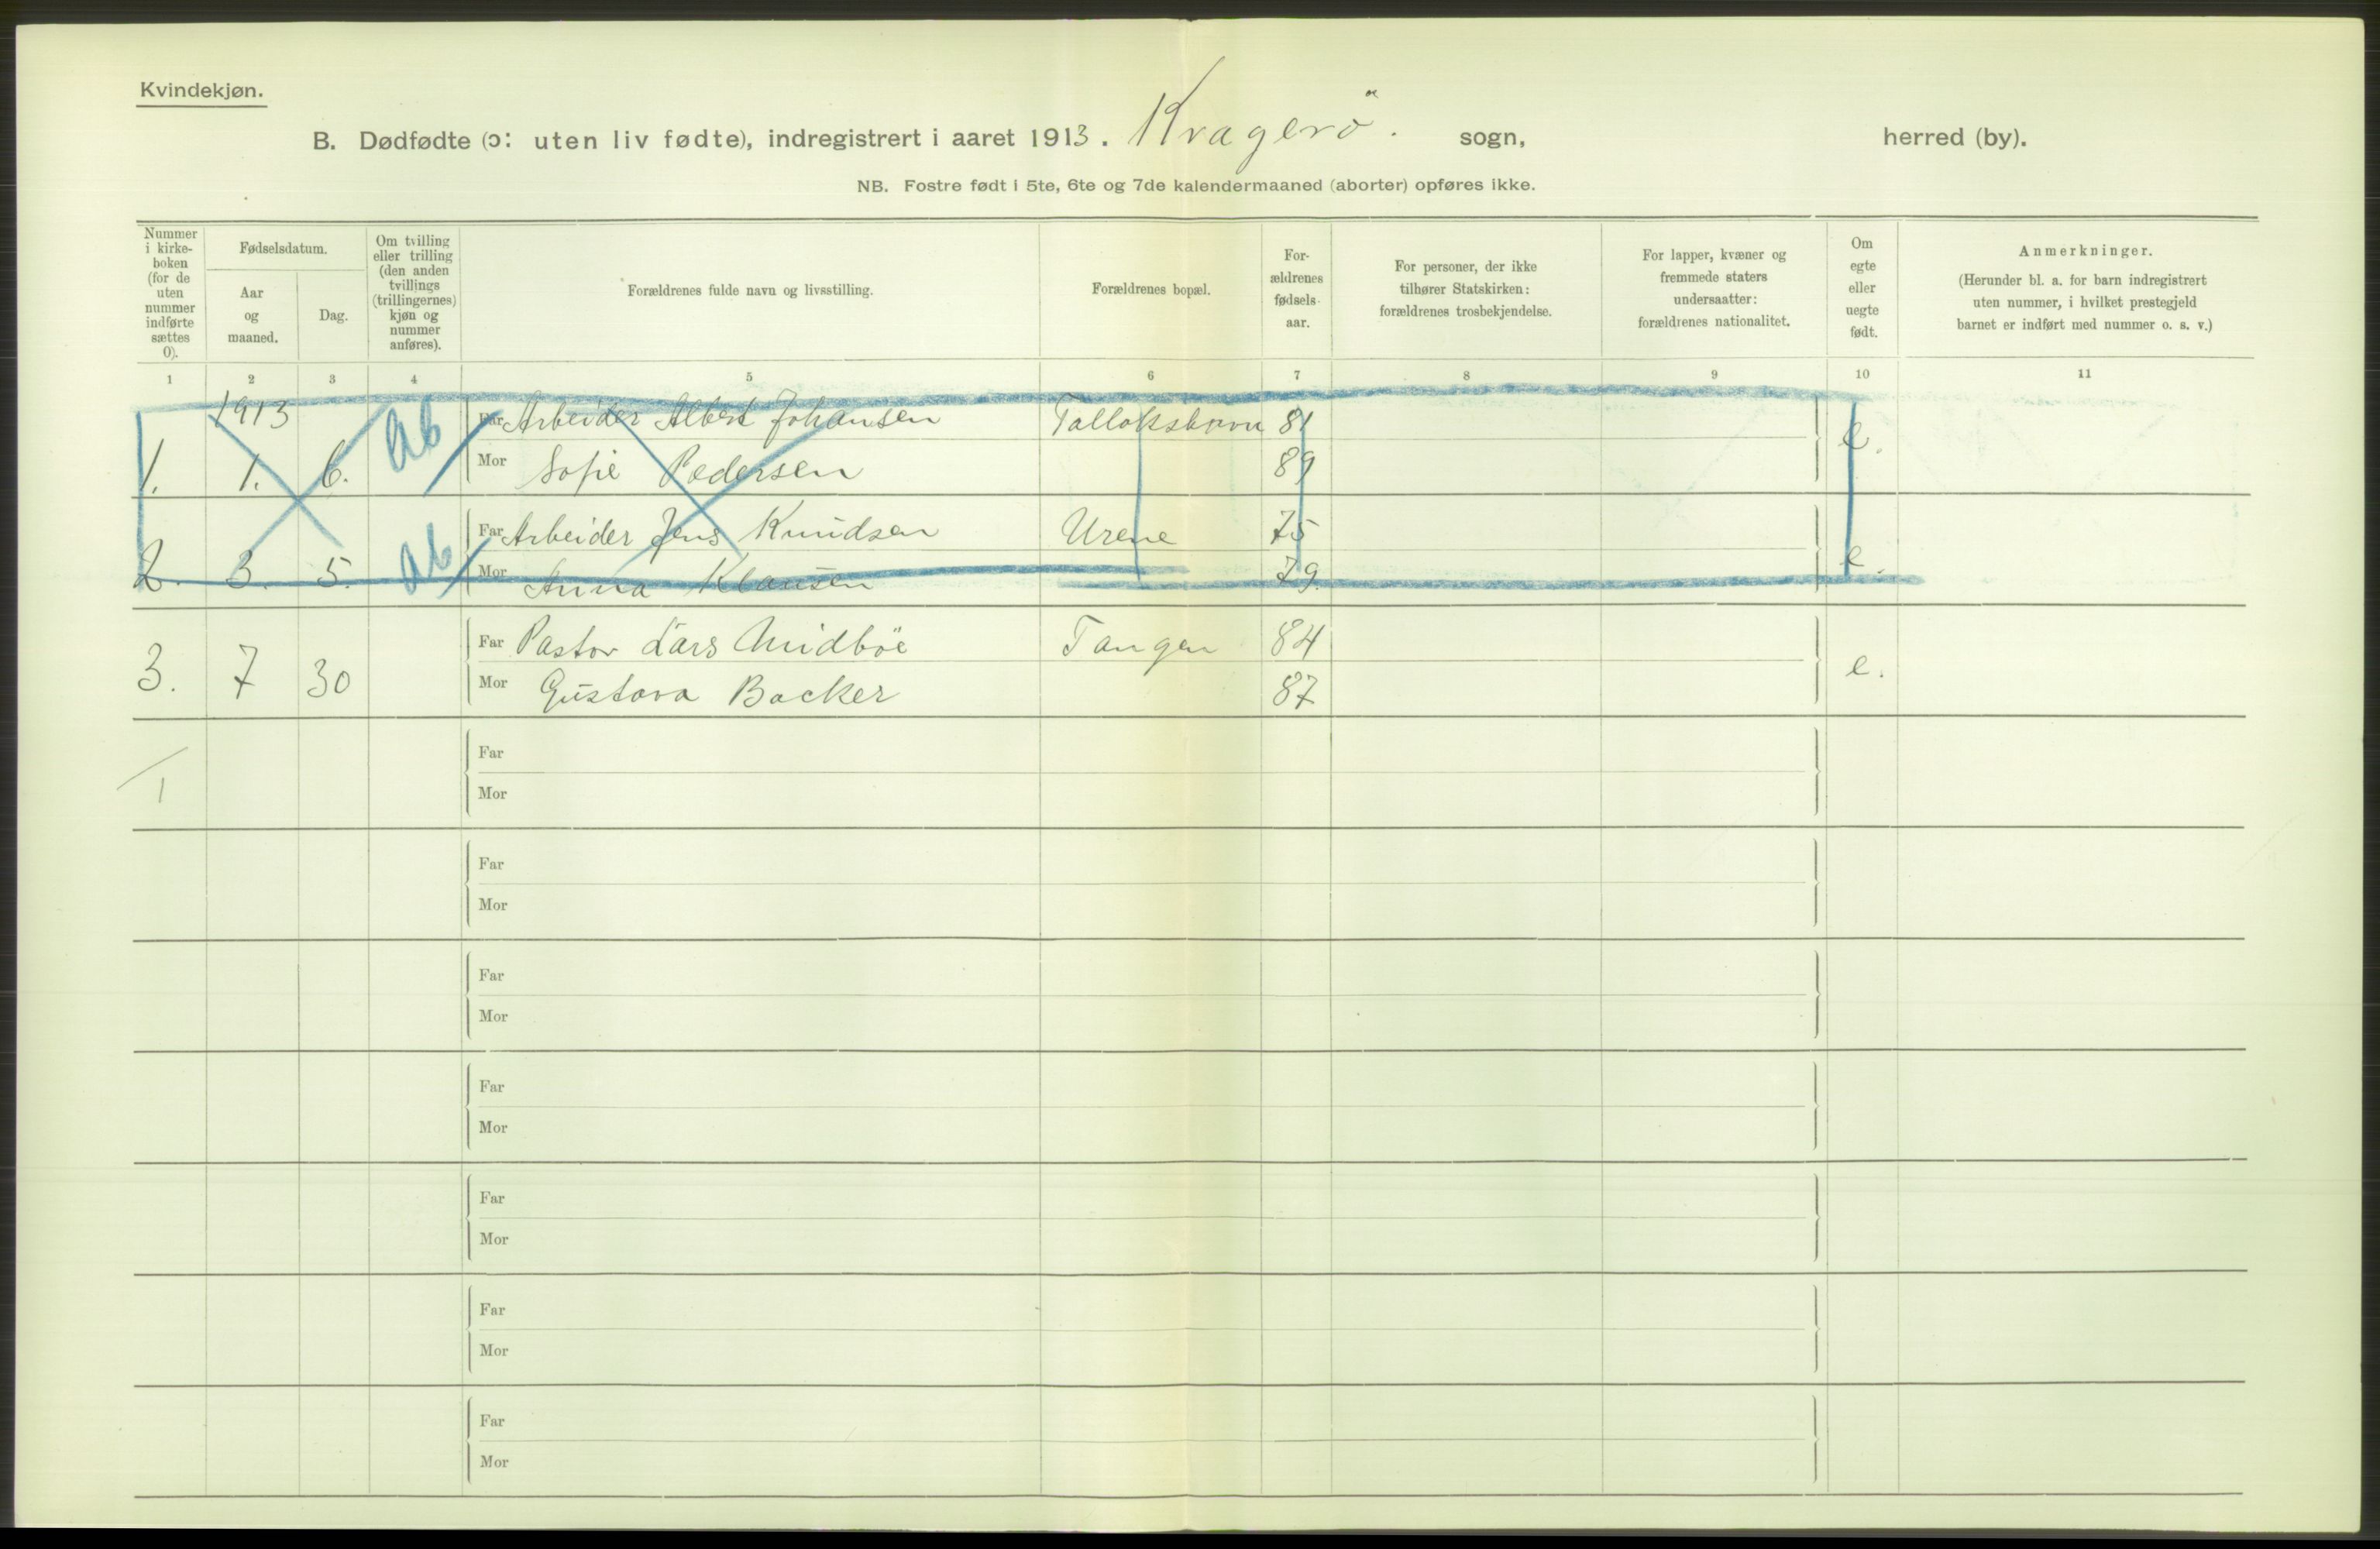 Kvindekjøn.
B. Dødfødte (ɔ: uten liv fødte), indregistrert i aaret 1913. Kragerö. sogn, herred (by).
NB. Fostre født i 5te, 6te og 7de kalendermaaned (aborter) opføres ikke.
Nummer i kirke-boken (for de uten nummer indførte sættes 0).
Fødselsdatum.
Aar og maaned.
Dag.
Om tvilling eller trilling (den anden tvillings (trillingernes) kjøn og nummer anføres).
Forældrenes fulde navn og livsstilling.
Forældrenes bopæl.
For-ældrenes fødsels-aar.
For personer, der ikke tilhører Statskirken: forældrenes trosbekjendelse.
For lapper, kvæner og fremmede staters undersaatter: forældrenes nationalitet.
Om egte eller uegte født.
Anmerkninger.
(Herunder bl. a. for barn indregistrert uten nummer, i hvilket prestegjeld barnet er indført med nummer o. s. v.)
1 2 3 4 5 6 7 8 9 10 11
1913
Far Arbeider Albert Johansen 81
1. 1. 6. ab Mor Sofie Pedersen 89 e.
Far Arbeider Jens Knudsen Urene 75
2. 3. 5. ab Mor Anna Klausen 79. e.
Far Pastor Lars Midböe Tangen 84
3. 7 30 Mor Gustava Backer 87 e.
Far
1 Mor
Far
Mor
Far
Mor
Far
Mor
Far
Mor
Far
Mor
Far
Mor